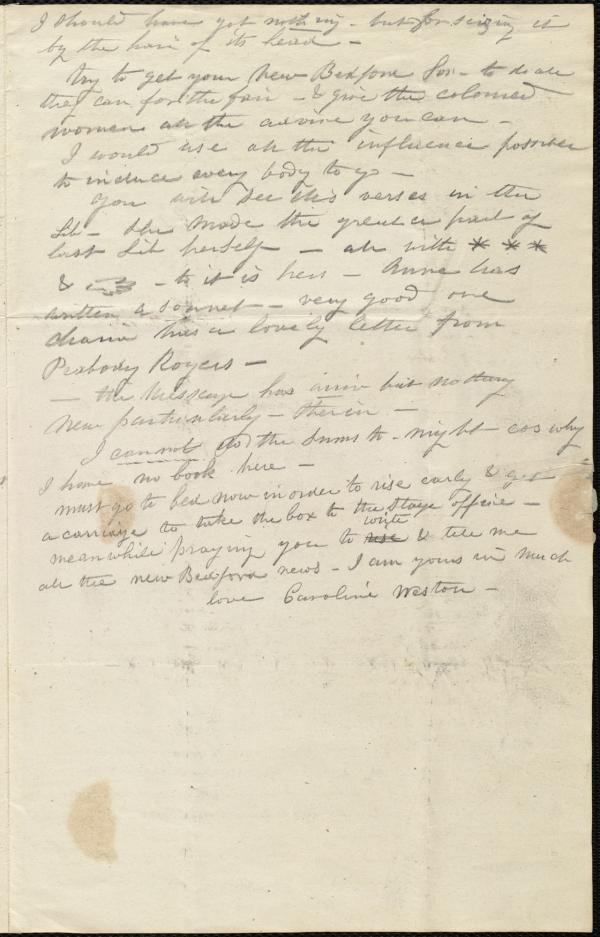 I should have got nothing - but for seizing it
by the hair of its head -
try to get your New Bedford Soc - to do all
they can for the fair - & give the colored
women all the advice you can -
I would use all the influence possible
to induce every body to go -
You will see verses in the
Lib - she made the greater part of
last Lib herself - all with * * *
& - to it is hers - Anne has
written a sonnet - very good one
Maria has a lovely letter from
Peabody Rogers -
- the Message has but nothing
new particularly - therein -
I cannot do the sums to-night - cos why
I have no book here -
must go to bed now in order to rise early & get
a carriage to take the box to the stage office -
meanwhile praying you to write & tell me
all the New Bedford news - I am yours in much
love Caroline Weston -